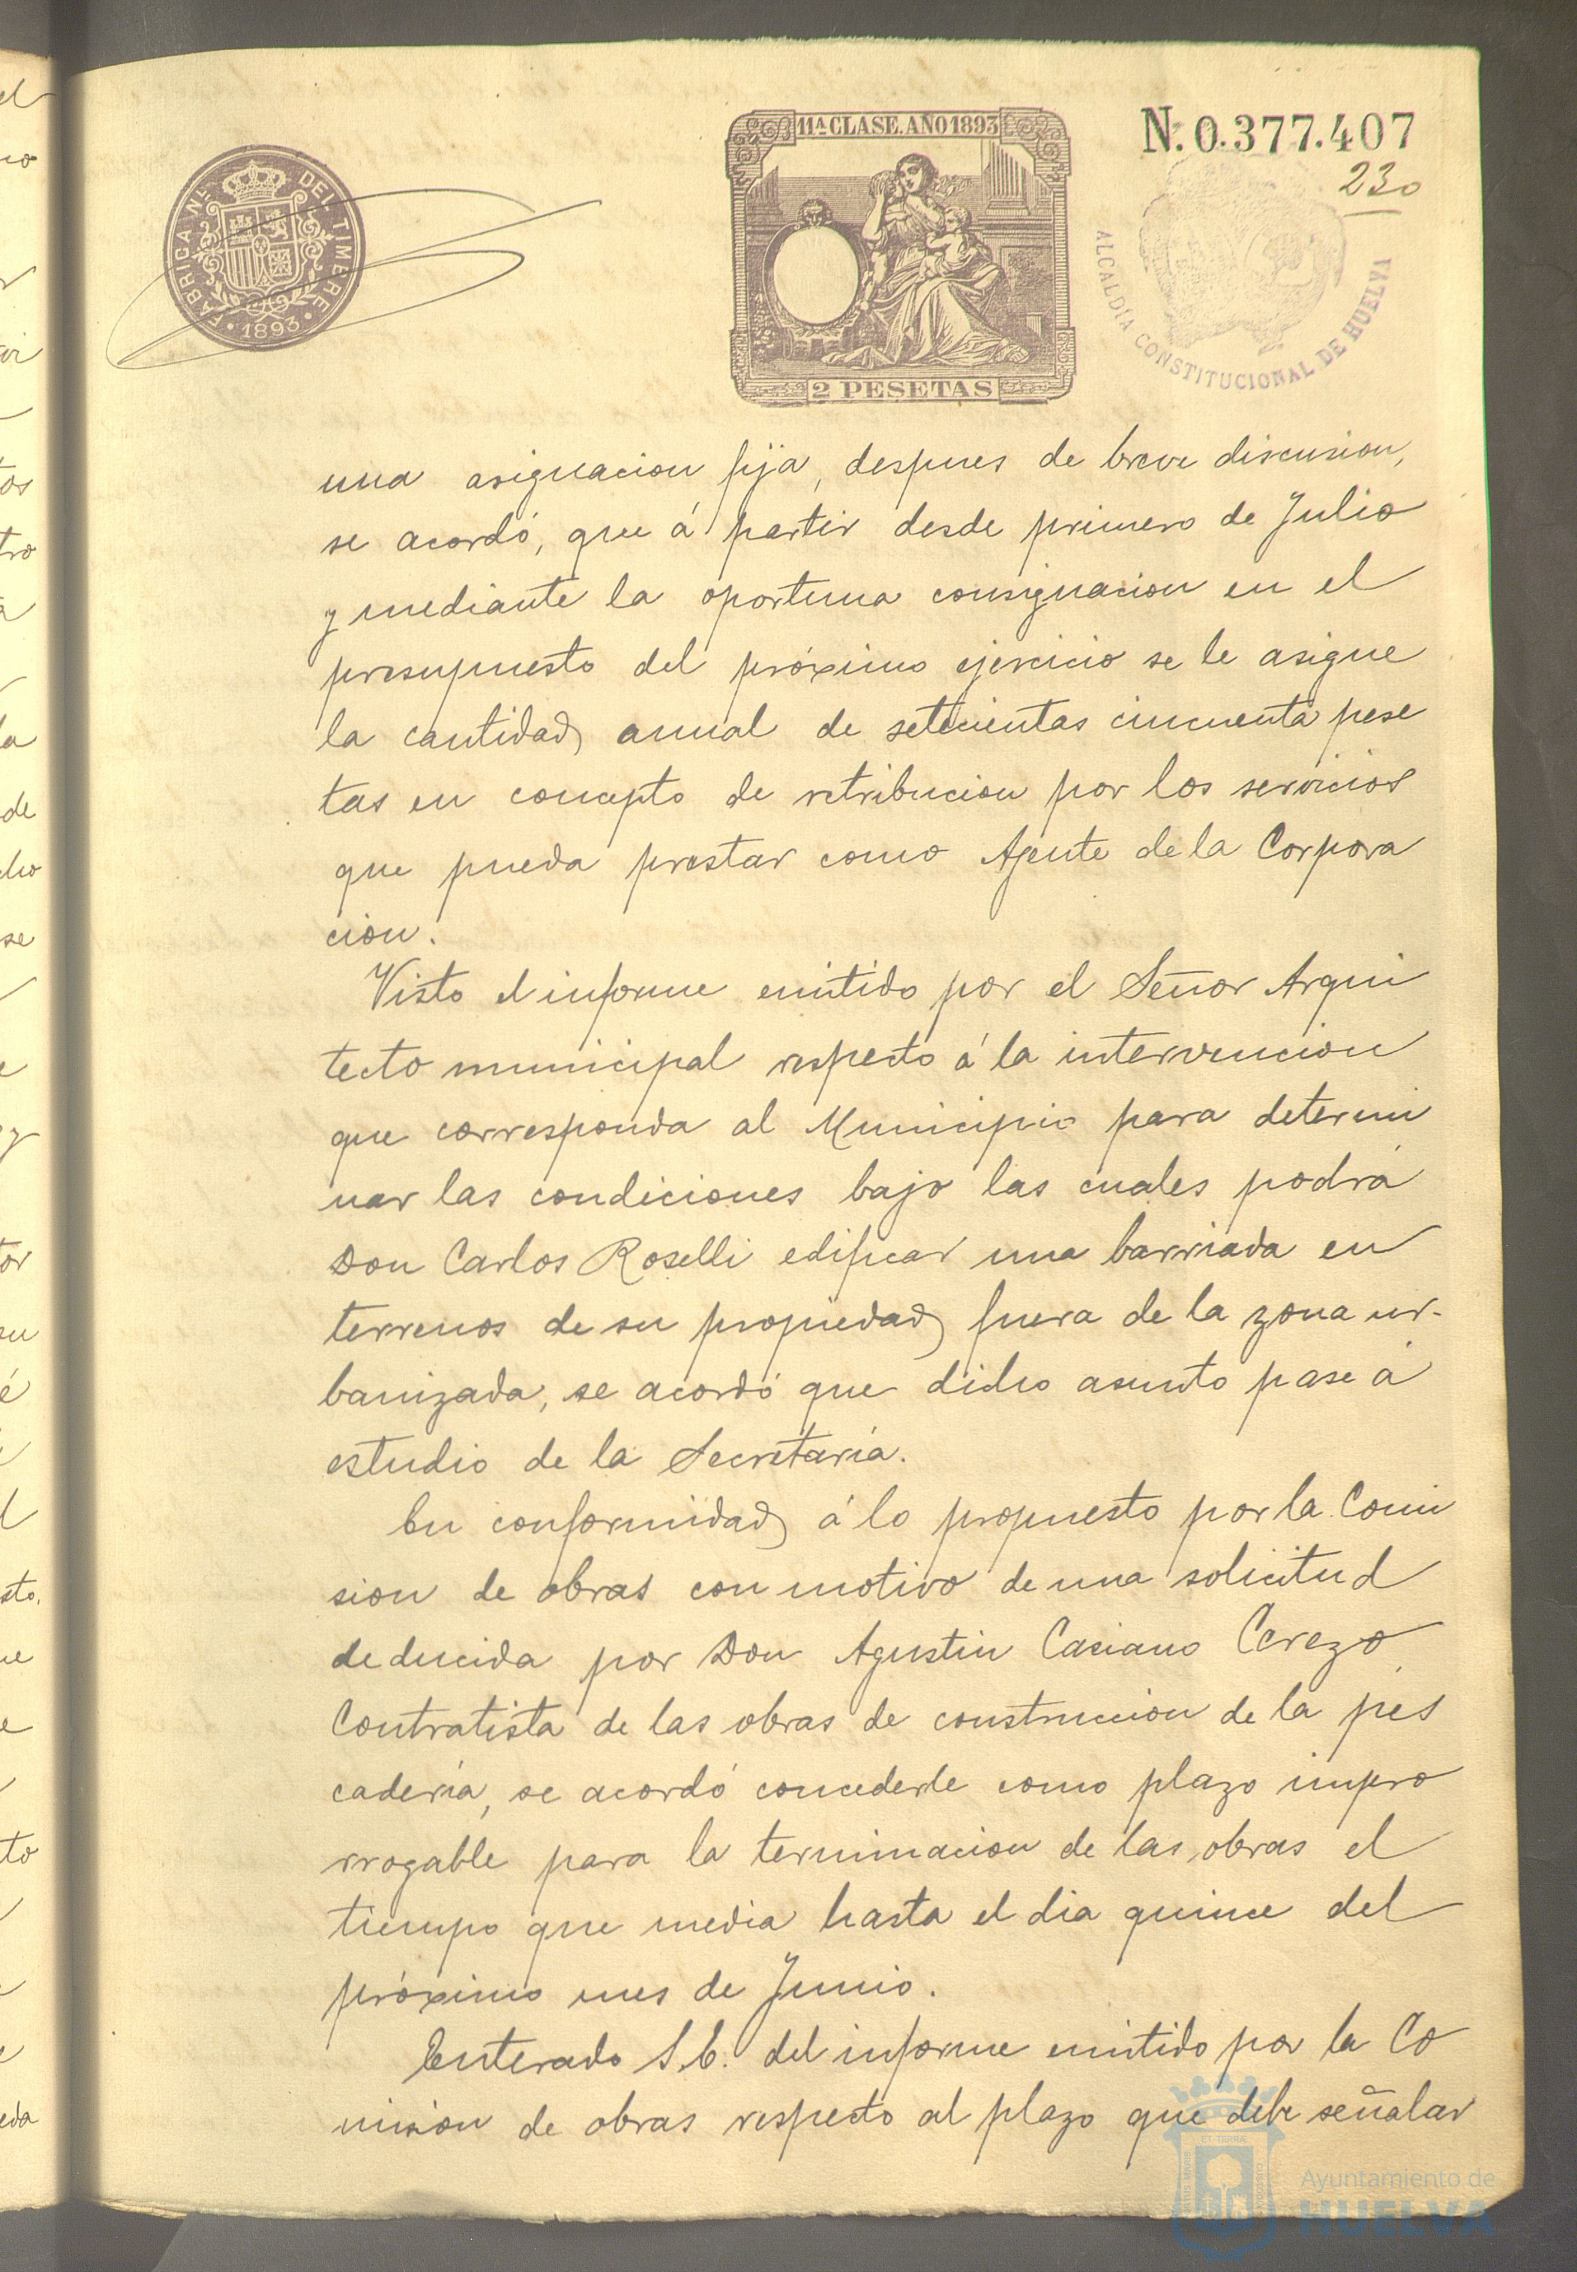 11ª CLASE. AÑO 1893
N. 0.377.407
230
FABRICA N.L DEL TIMBRE
1893
2 PESETAS
ALCALDÍA CONSTITUCIONAL DE HUELVA
una asignacion fija, despues de breve discusion,
se acordó, que á partir desde primero de Julio
y mediante la oportuna consignacion en el
presupuesto del próximo ejercicio se le asigne
la cantidad anual de setecientas cincuenta pese
tas en concepto de retribucion por los servicios
que pueda prestar como Agente de la Corpora
cion.
Visto el informe emitido por el Señor Arqui
tecto municipal respecto á la intervencion
que corresponda al Municipio para determi
nar las condiciones bajo las cuales podrá
Don Carlos Roselli edificar una barriada en
terrenos de su propiedad fuera de la zona ur-
banizada, se acordó que dicho asunto pase á
estudio de la Secretaría.
En conformidad á lo propuesto por la Comi
sion de obras con motivo de una solicitud
deducida por Don Agustin Casiano Cerezo
Contratista de las obras de construccion de la pes
cadería, se acordó concederle como plazo impro
rrogable para la terminacion de las obras el
tiempo que media hasta el dia quince del
próximo mes de Junio.
Enterado S.E. del informe emitido por la Co
mision de obras respecto al plazo que debe señalar
Ayuntamiento de
HUELVA